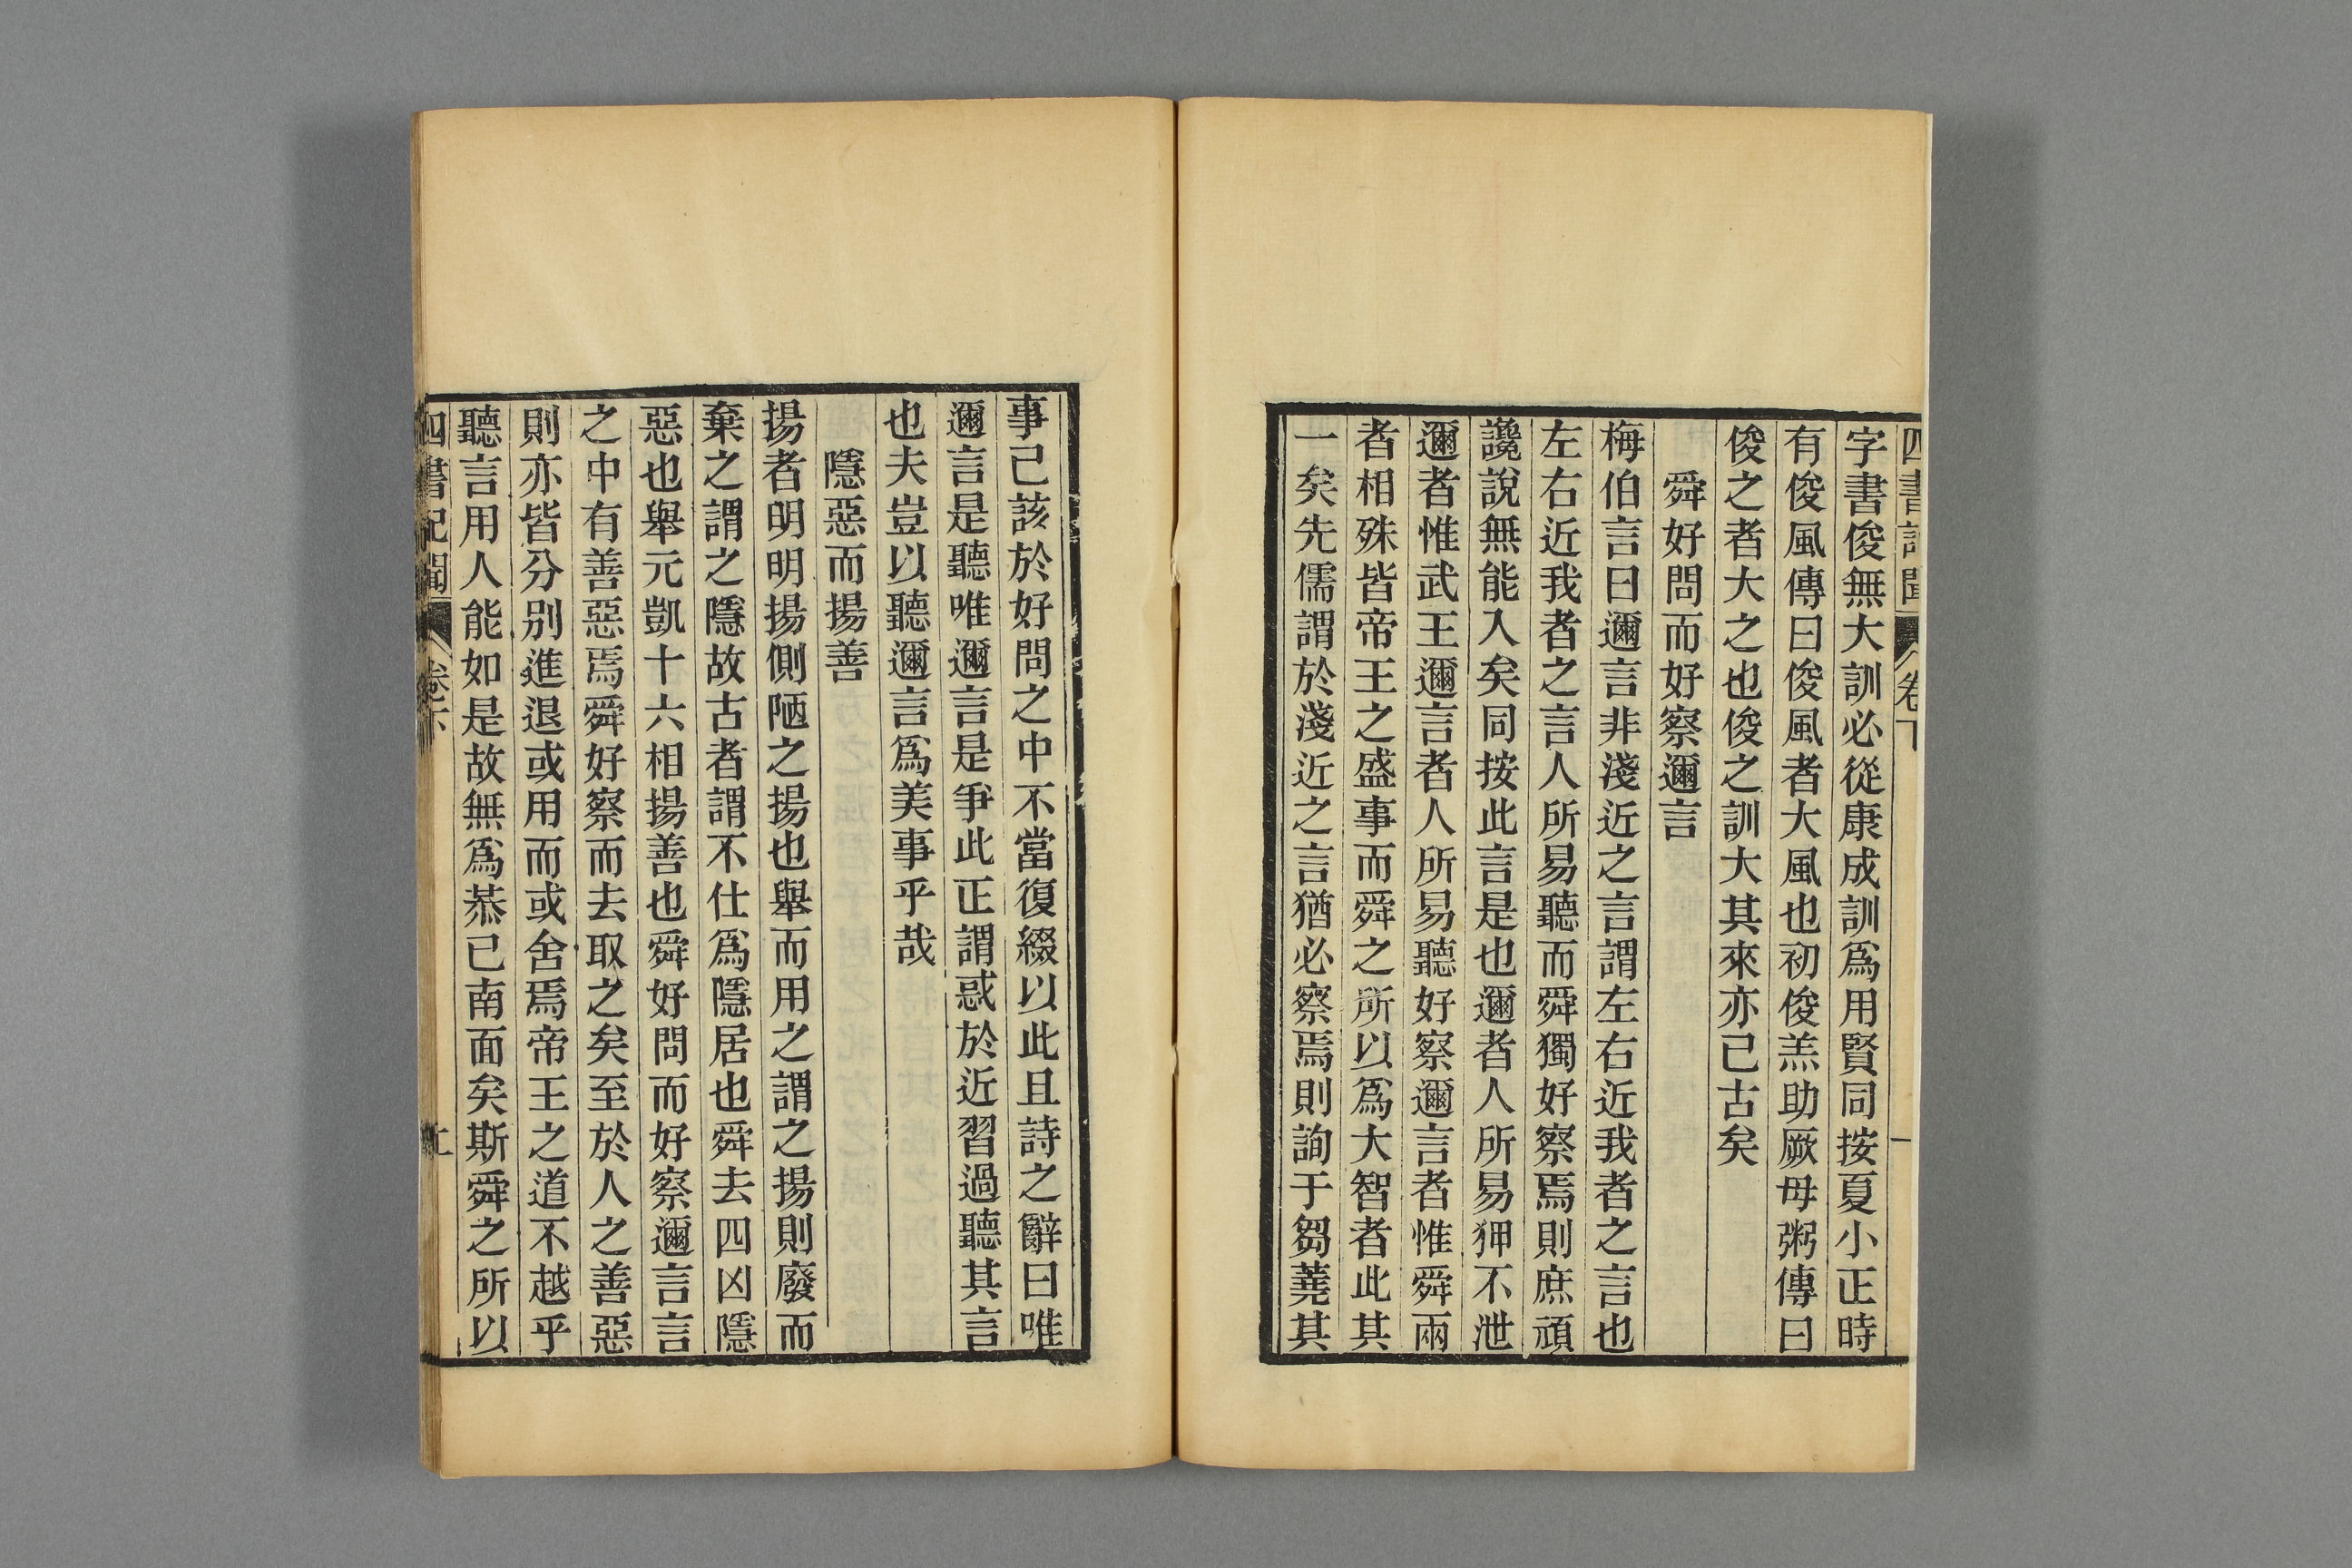 四書記聞 卷下 一
字書俊無大訓必從康成訓爲用賢同按夏小正時
有俊風傳曰俊風者大風也初俊羔助厥母粥傳曰
俊之者大之也俊之訓大其來亦已古矣
舜好問而好察邇言
梅伯言曰邇言非淺近之言謂左右近我者之言也
左右近我者之言人所易聽而舜獨好察焉則庶頑
讒說無能入矣同按此言是也邇者人所易狎不泄
邇者惟武王邇言者人所易聽好察邇言者惟舜兩
者相殊皆帝王之盛事而舜之所以爲大智者此其
一矣先儒謂於淺近之言猶必察焉則詢于芻蕘其
事已該於好問之中不當復綴以此且詩之辭曰唯
邇言是聽唯邇言是爭此正謂惑於近習過聽其言
也夫豈以聽邇言爲美事乎哉
隱惡而揚善
揚者明明揚側陋之揚也舉而用之謂之揚則廢而
棄之謂之隱故古者謂不仕爲隱居也舜去四凶隱
惡也舉元凱十六相揚善也舜好問而好察邇言言
之中有善惡焉舜好察而去取之矣至於人之善惡
則亦皆分別進退或用而或舍焉帝王之道不越乎
聽言用人能如是故無爲恭已南面矣斯舜之所以
四書記聞 卷下